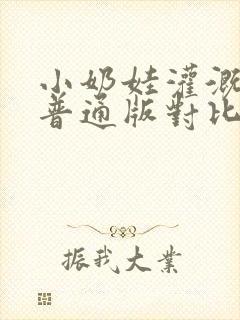 小奶娃灌溉
普通版對比
振我大業